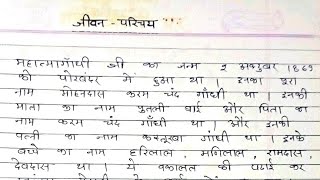 जीवन - परिचय
महात्मागाँधी जी का जन्म 2 अक्टुबर 1869
को पोरबंदर मे हुआ था । इनका पुरा
नाम मोहनदास करम चंद गाँधी था । इनकी
माता का नाम पुतली बाई और पिता का
नाम करम चंद गाँधी था । और इनकी
पत्नी का नाम कस्तुरबा गांधी था । इनके
बच्चे का नाम हरिलाल, मणिलाल, रामदास,
देवदास था । ये वकालत की पढाई कर